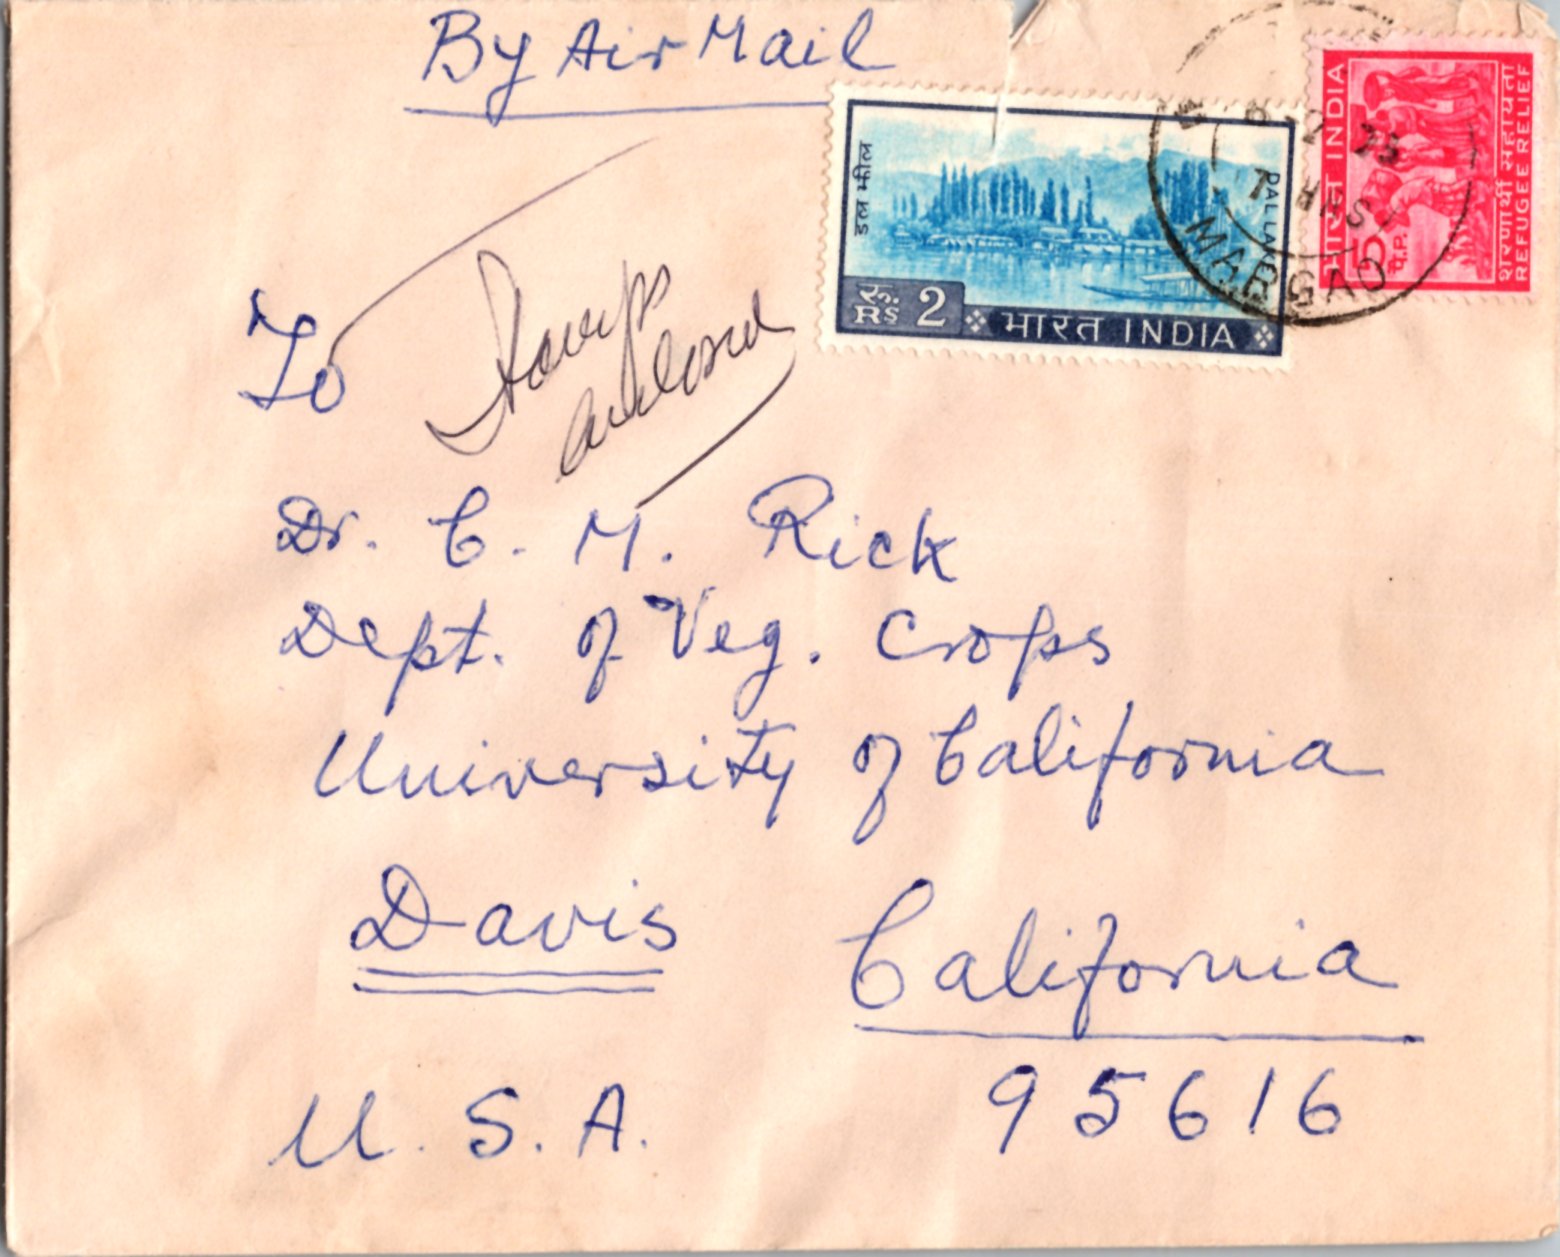 By Air Mail
डल झील
DAL LAKE
रु. 2
Rs
भारत INDIA
भारत INDIA
शरणार्थी सहायता
REFUGEE RELIEF
5
प.P.
MARGAO
To
Dr. C. M. Rick
Dept. of Veg. Crops
University of California
Davis California
U. S. A. 95616